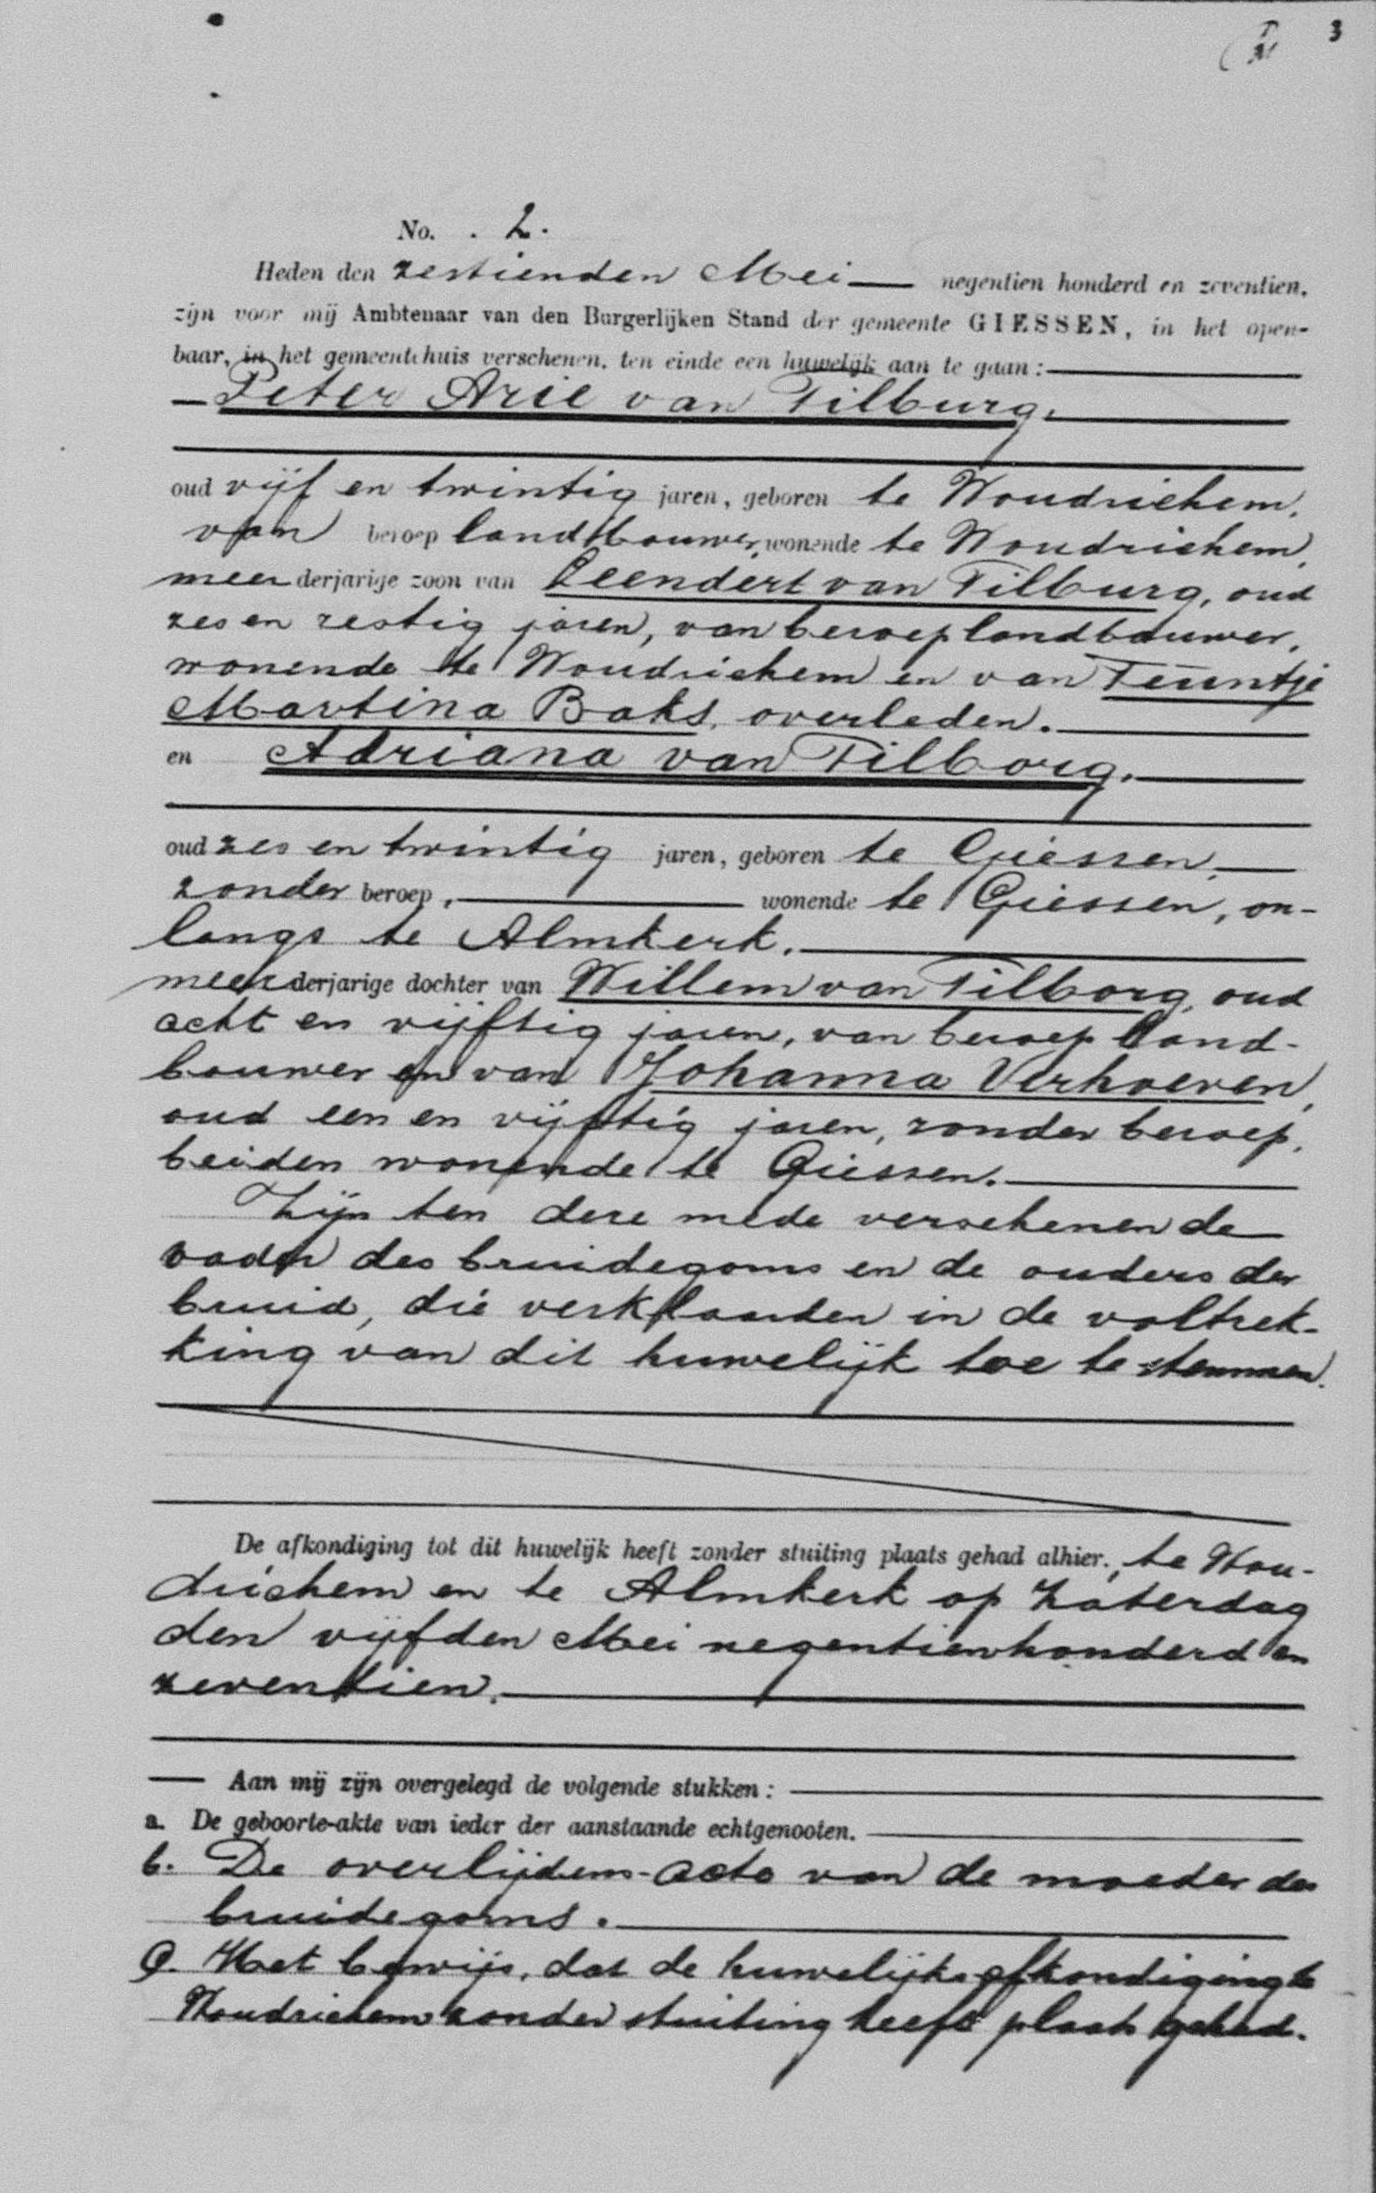 3
No. . 2.
Heden den zestienden Mei negentien honderd en zeventien,
zijn voor mij Ambtenaar van den Burgerlijken Stand der gemeente GIESSEN, in het open-
baar, in het gemeentehuis verschenen, ten einde een huwelijk aan te gaan:
Peter Arie van Tilburg.
oud vijf en twintig jaren, geboren te Woudrichem,
van beroep landbouwer, wonende te Woudrichem,
meerderjarige zoon van Leendert van Tilburg, oud
zes en zestig jaren, van beroep landbouwer,
wonende te Woudrichem en van Teuntje
Martina Baks, overleden.
en Adriana van Tilborg.
oud zes en twintig jaren, geboren te Giessen,
zonder beroep, wonende te Giessen, on-
langs te Almkerk.
meerderjarige dochter van Willem van Tilborg, oud
acht en vijftig jaren, van beroep land-
bouwer en van Johanna Verhoeven,
oud een en vijftig jaren, zonder beroep,
beiden wonende te Giessen.
Zijn ten deze mede verschenen de
vader des bruidegoms en de ouders der
bruid, die verklaarden in de voltrek-
king van dit huwelijk toe te stemmen.
De afkondiging tot dit huwelijk heeft zonder stuiting plaats gehad alhier, te Wou-
drichem en te Almkerk op Zaterdag
den vijfden Mei negentienhonderd en
zeventien.
Aan mij zijn overgelegd de volgende stukken:
a. De geboorte-akte van ieder der aanstaande echtgenooten.
b. De overlijdens-acte van de moeder des
bruidegoms.
c. Het bewijs, dat de huwelijksafkondiging te
Woudrichem zonder stuiting heeft plaats gehad.